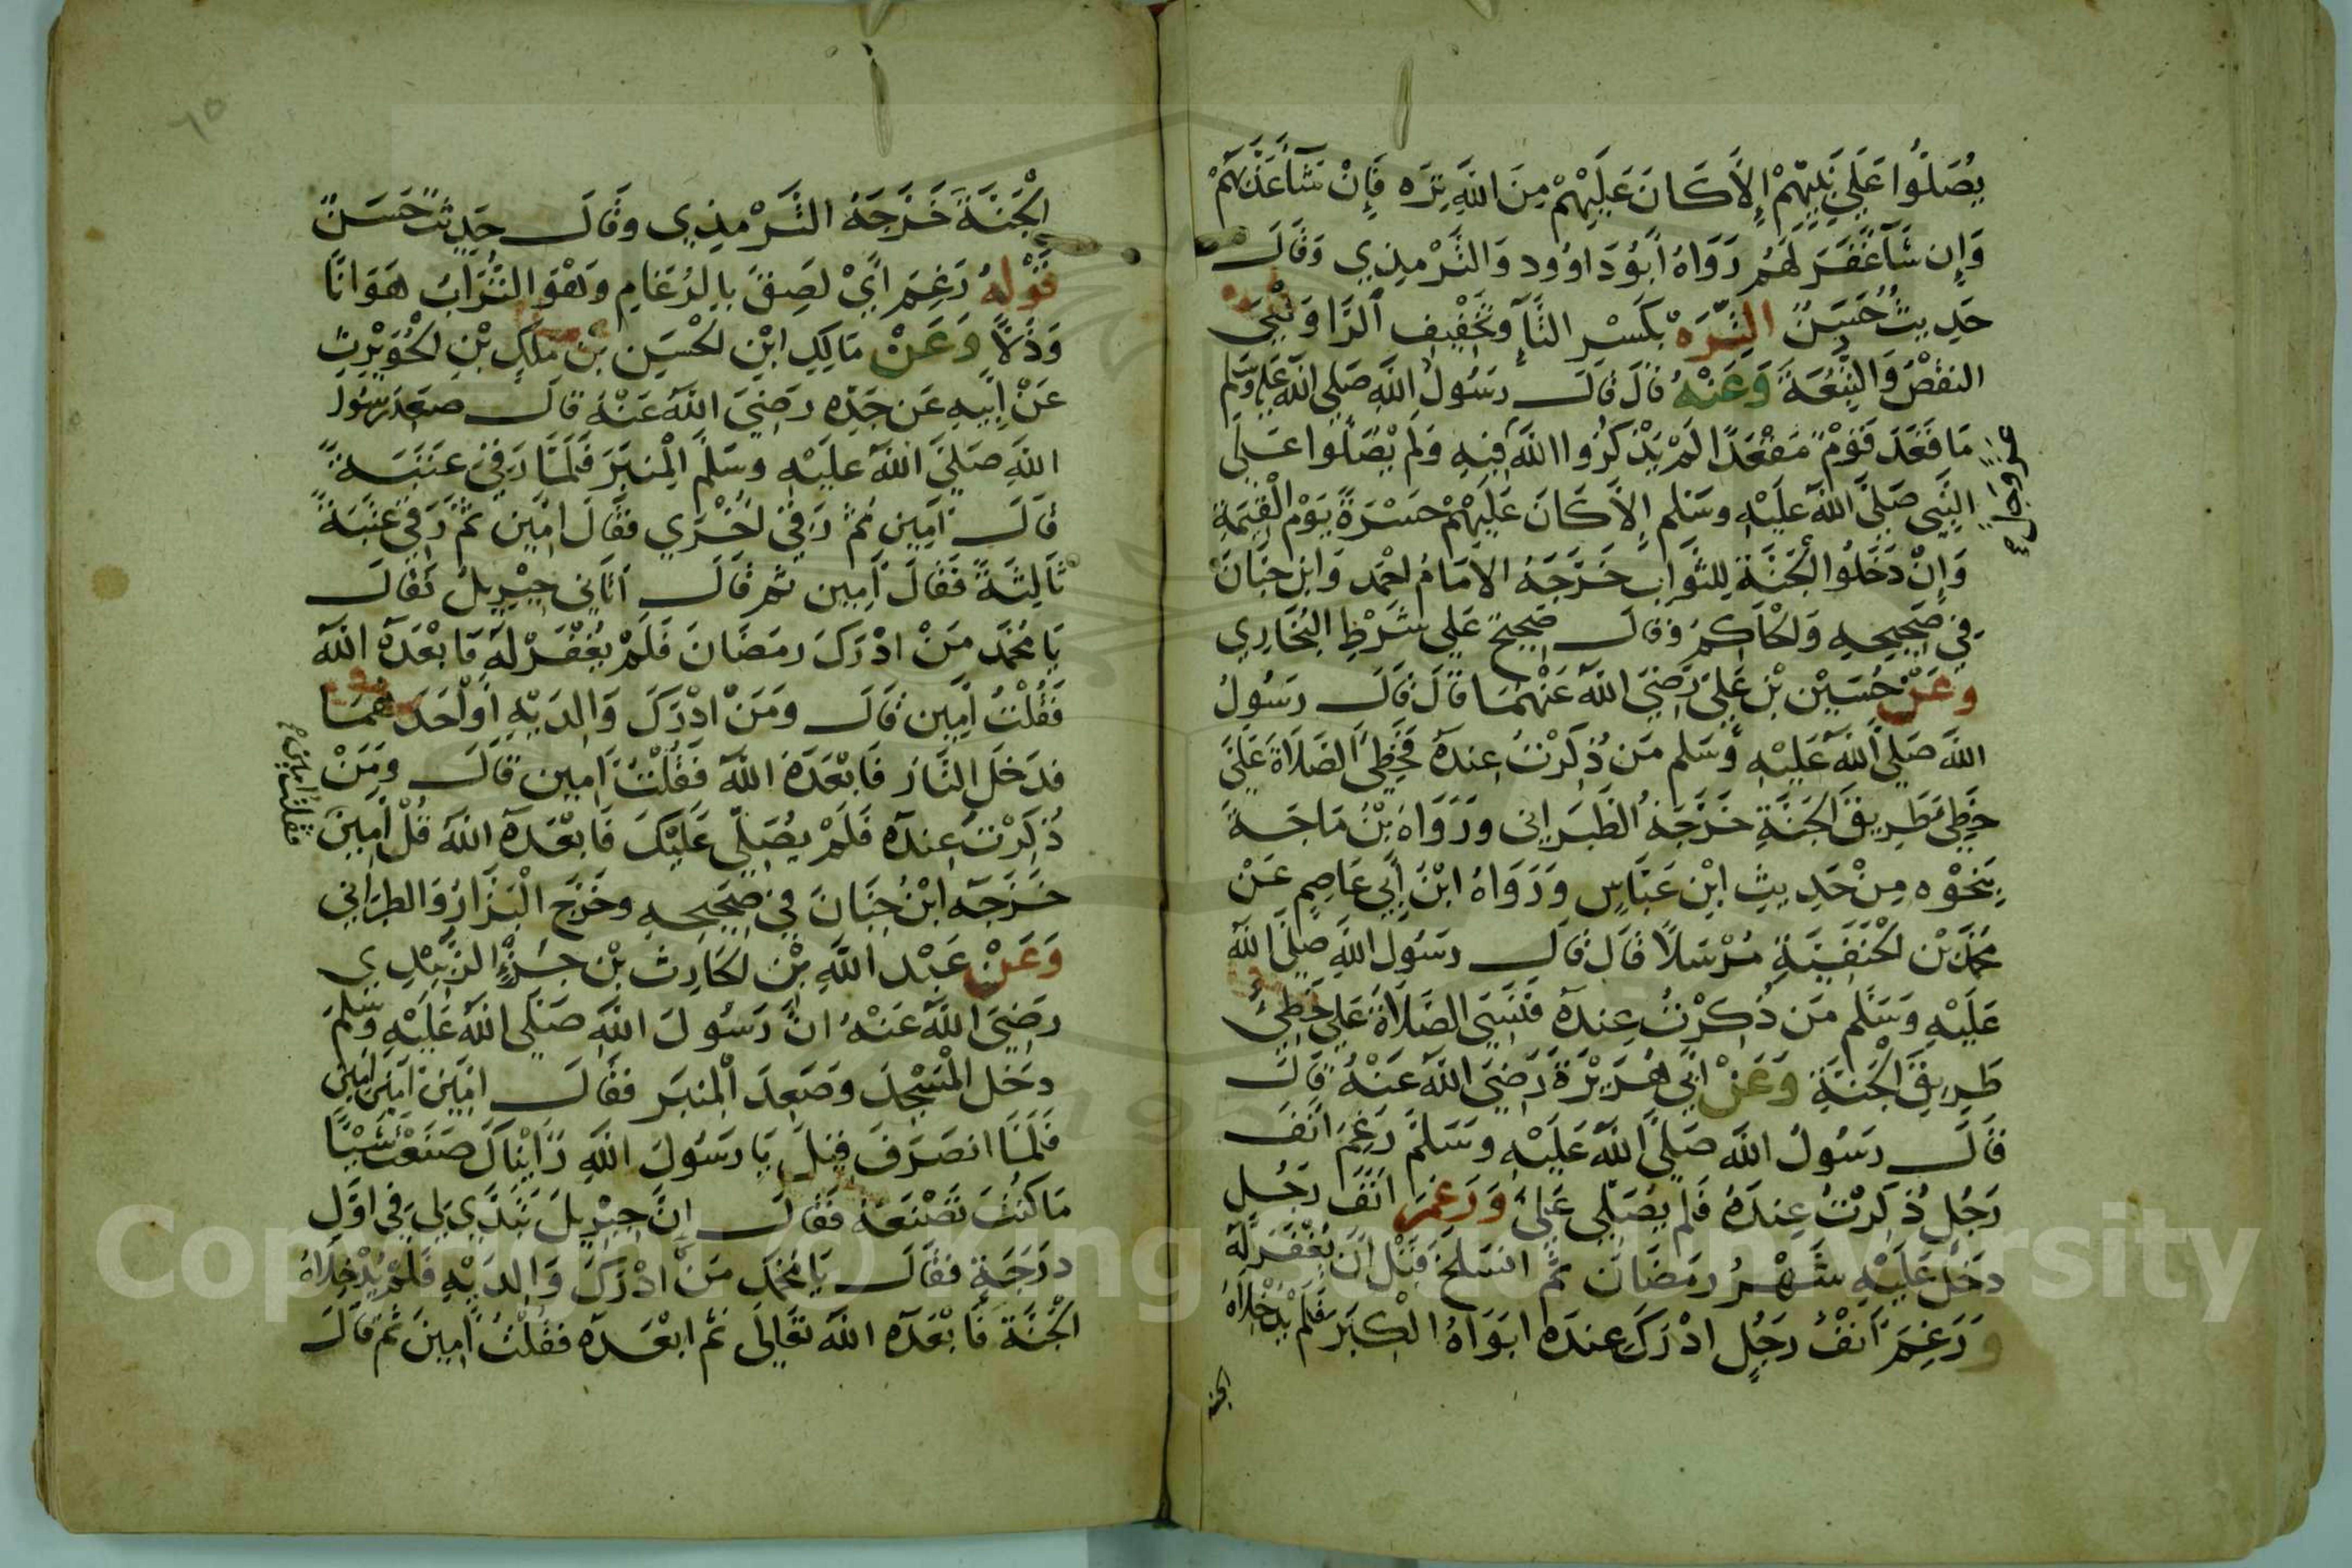 يُصَلُّوا عَلَى نَبِيِّهِمْ إِلَّا كَانَ عَلَيْهِمْ مِنَ اللَّهِ تِرَه فَإِنْ شَآ عَذَّبَهُمْ
وَإِن شَآ غَفَرَ لَهُم رَوَاهُ أَبُو دَاوُود وَالتِّرْمِذِي وَقَالَ
حَدِيثٌ حَسَنٌ التِّرَه بِكَسْرِ التَّآءِ وَتَخْفِيفِ الرَّا وَهِيَ
النقْصُ وَالتَّبِعَة وَعَنْهُ قَالَ قَالَ رَسُولُ اللَّه صَلَى اللَّه عَلَيْهِ وَسَلم
مَا قَعَدَ قَوْمٌ مَقْعَدًا لَمْ يَذْكُرُوا اللَّهَ فِيهِ وَلَمْ يُصَلُّوا عَلَى
النَّبِي صَلَّى اللَّه عَلَيْهِ وسَلم إِلَّا كَانَ عَلَيْهِمْ حَسْرَةً يَوْمَ الْقِيمَةِ
وَإِنْ دَخَلُوا الْجَنَّةَ لِلثَّوَابِ خَرَّجَهُ الامَامُ احْمَد وَابن حِبَّانَ
فِي صَحِيحِهِ وَالْحَاكِمُ وَقَالَ صَحِيحٌ عَلَى شَرْطِ الْبُخَارِي
وعَنْ حُسَيْن بْنِ عَلِي رَضِيَ اللَّه عَنْهُمَا قَالَ قَالَ رَسُولُ
اللَّه صَلَى اللَّه عَلَيْهِ وَسَلم مَن ذُكِرْتُ عِندَهُ فَخَطِئَ الصَّلَاةَ عَلَيَّ
خَطِئَ طَرِيقَ الْجَنَّةِ خَرَّجَهُ الطَّبَرَانِي وَرَوَاهُ بْنُ مَاجَة
بِنَحْوِه مِنْ حَدِيثِ ابْنِ عَبَّاسٍ وَرَوَاهُ ابْنُ أَبِي عَاصِمٍ عَنْ
مُحَمَّد بْن الْحَنَفِيَّةِ مُرْسَلًا قَالَ قَالَ رَسُولُ اللَّه صَلَّى اللَّه
عَلَيْهِ وَسَلَّم مَن ذُكِرْتُ عِندَهُ فَنَسِيَ الصَّلَاةَ عَلَيَّ خَطِئَ
طَرِيقَ الْجَنَّةِ وَعَنْ ابِي هُرَيْرَةَ رَضِيَ اللَّه عَنْهُ قَالَ
قَالَ رَسُولُ اللَّه صَلَى اللَّه عَلَيْهِ وسَلمَ رَغِمَ انَفَ
رَجُلٍ ذُكِرْتُ عِندَهُ فَلَم يُصَلِّي عَلَيَّ وَرَغِمَ انَفَ رَجُلٍ
دخَلَ عَلَيْهِ شَهْرُ رمَضَان ثُمَّ انسَلَخَ قَبْلَ انَ يُغْفَرَ لَهُ
وَرَغِمَ أَنْفُ رَجُلٍ ادْرَكَ عِندَه ابَوَاهُ الْكِبَر فَلَمْ يُدْخِلَاهُ
الجنة
الْجَنَّةَ خَرَّجَهُ التِّرْمِذِي وقَالَ حَدِيثٌ حَسَنٌ
قَوْلهُ رَغِمَ ايْ لَصِقَ بِالرُّغَامِ وَهْوَ التُّرَابُ هَوَانًا
وَذُلًّا وَعَنْ مَالِكِ ابْنِ الْحُسَين بْنِ مَلِكِ بْنِ الْحُوَيْرِثِ
عَنْ ابِيهِ عَن جَدِّه رضِيَ اللَّه عَنْهُ قالَ صعَدَ رَسُول
اللَّهِ صَلَّى اللَّه عَلَيْهِ وسَلَّمَ الْمِنبَرَ فَلَمَّا رَقِيَ عَتَبَةً
قَالَ آمِين ثُمَّ رَقِيَ اخْرَي فقَالَ امِّينَ ثُمَّ رَقِيَ عَتَبَةً
ثَالِثَةً فقَالَ آمِين ثم قَالَ اتَانِي جِبْرِيلُ فقَالَ
يَا مُحَمَّد مَنْ ادْرَكَ رمَضَانَ فَلَمْ يُغْفَرْ لَهُ فَابْعَدَهُ اللَّه
فَقُلْتُ آمِين قَالَ ومَنْ ادْرَكَ وَالِدَيْهِ أَوْ احَدَهُمَا
فدَخَلَ النَّارَ فَابْعَدَهُ اللَّه فَقُلْتُ آمِين قَالَ وَمَنْ
ذُكِرْتَ عِندَهُ فَلَمْ يُصَلِّي عَلَيْكَ فَابْعَدَهُ اللَّه قُلْ آمِينَ
فقلت آمين
خَرَّجَهُ ابْنُ حِبَّانَ فِي صَحِيحِهِ وخَرَّجَ الْبَزَّارُ وَالطبَرَانِي
وَعَنْ عَبْد اللَّهِ بْنِ الْحَارِث بْنِ جَزْءٍ الزُّبَيْدِي
رضِيَ اللَّه عَنْهُ انَّ رَسُولَ اللَّه صَلَّى اللَّه عَلَيْهِ وَسَلمَ
دخَلَ الْمَسْجِدَ وصَعِدَ الْمِنبَر فقَالَ امِّينَ آمِينَ آمِينَ
فَلَمَّا انصَرَفَ قِيلَ يَا رسُولَ اللَّهِ رَايْنَاكَ صنَعْتَ شَيْئًا
مَا كُنْتَ تَصْنَعُهُ فقَالَ إنَّ جِبْرِيلَ تَبَدَّي لِي فِي اوَّلِ
درَجَةٍ فقَالَ يَا مُحَمَّد مَنْ ادْرَكَ وَالِدَيْهِ فَلَمْ يُدْخِلَاهُ
الْجَنَّةَ فَابْعَدَهُ اللَّه تعَالَى ثم ابْعَدَه فقُلْتُ آمِينَ ثُمَّ قَالَ
Copyright © King Saud University